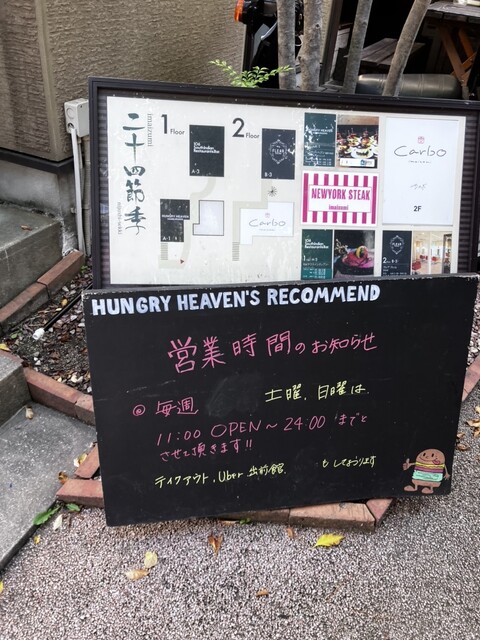 二十四節季
imaizumi
1 Floor
2 Floor
A-3
B-3
HUNGRY HEAVEN
A-1
Carbo
Carbo
2F
NEWYORK STEAK
imaizumi
HUNGRY HEAVEN'S RECOMMEND
営業時間のお知らせ
◎ 毎週 土曜、日曜は、
11:00 OPEN〜24:00 までと
させて頂きます!!
テイクアウト、Uber 出前館